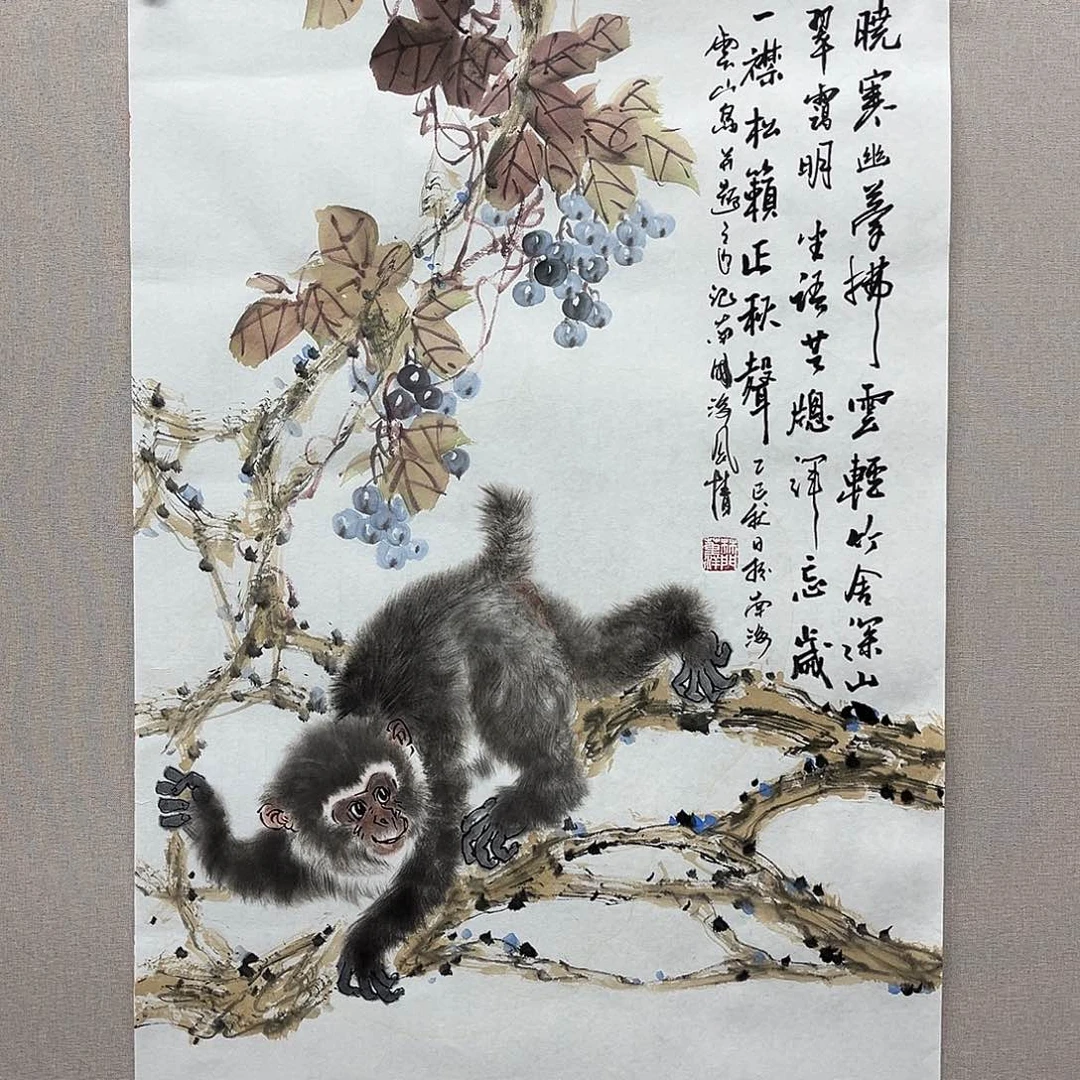 晓寒幽夢拂雲輕竹舍深山
翠靄明坐語芸牕渾忘歲
一襟松籟正秋聲乙巳秋日於南海
雲山寫并題之以記南國海風情